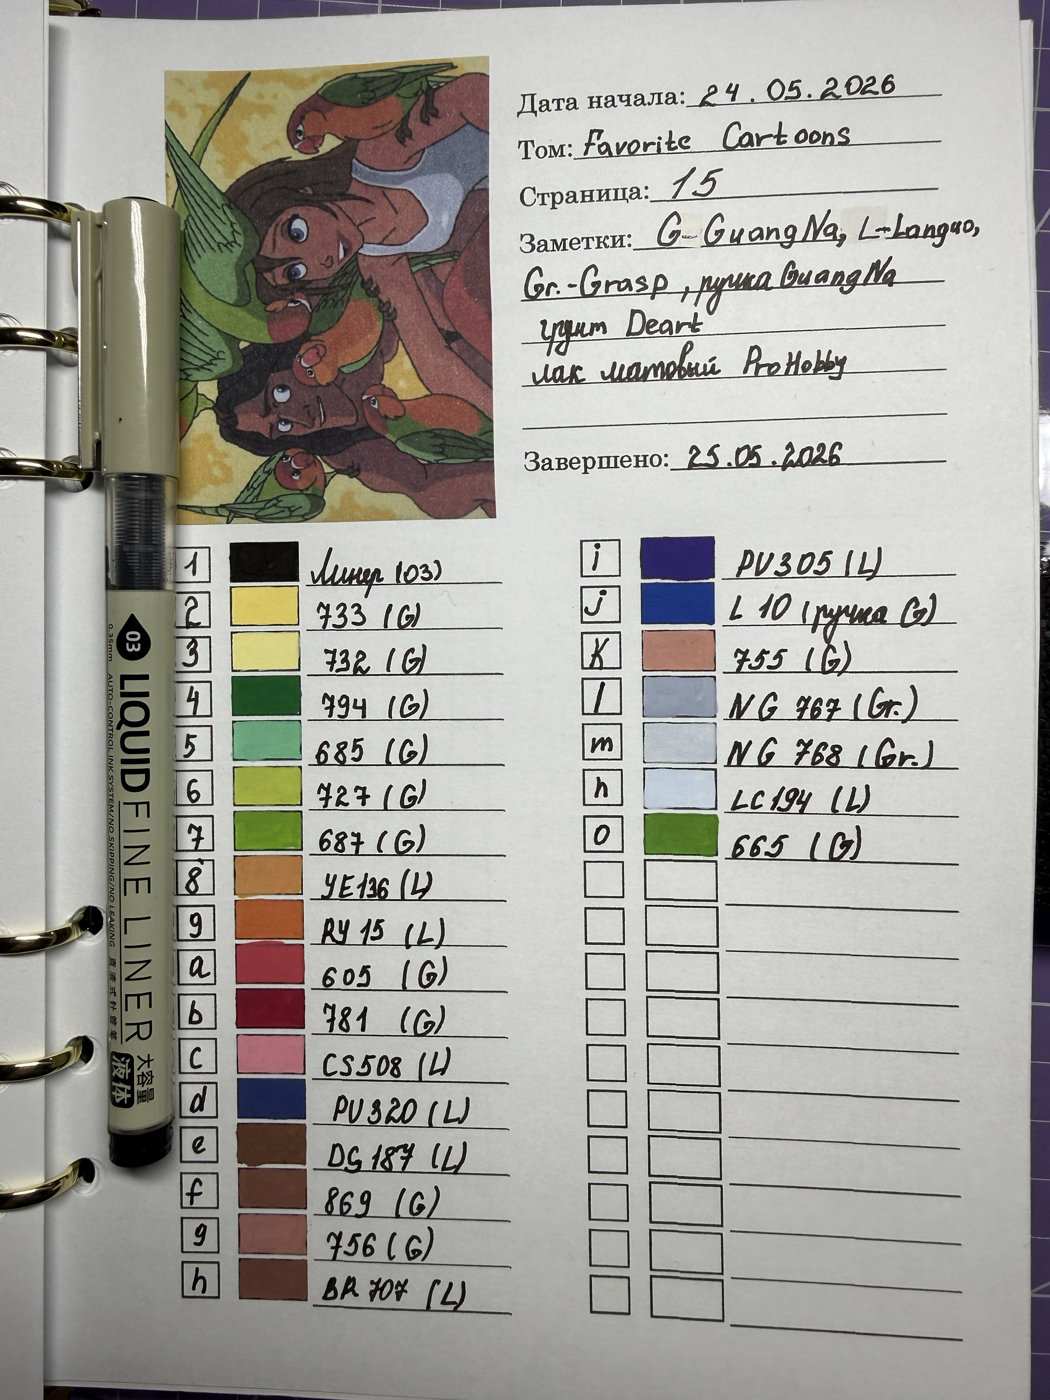 Дата начала: 24.05.2026
Том: Favorite Cartoons
Страница: 15
Заметки: G-GuangNa, L-Languo,
Gr.-Grasp, ручка GuangNa
грунт Deart
лак матовый ProHobby
Завершено: 25.05.2026
1 Линер (03)
2 733 (G)
3 732 (G)
4 794 (G)
5 685 (G)
6 727 (G)
7 687 (G)
8 YE136 (L)
9 RY15 (L)
a 605 (G)
b 781 (G)
c CS508 (L)
d PV320 (L)
e DG187 (L)
f 869 (G)
g 756 (G)
h BR707 (L)
i PV305 (L)
j L10 (ручка G)
K 755 (G)
l NG 767 (Gr.)
m NG 768 (Gr.)
n LC194 (L)
o 665 (G)
03 LIQUID FINE LINER
0.35mm AUTO-CONTROL INK SYSTEM/NO SKIPPING/NO LEAKING 直液式针管笔
大容量
液体